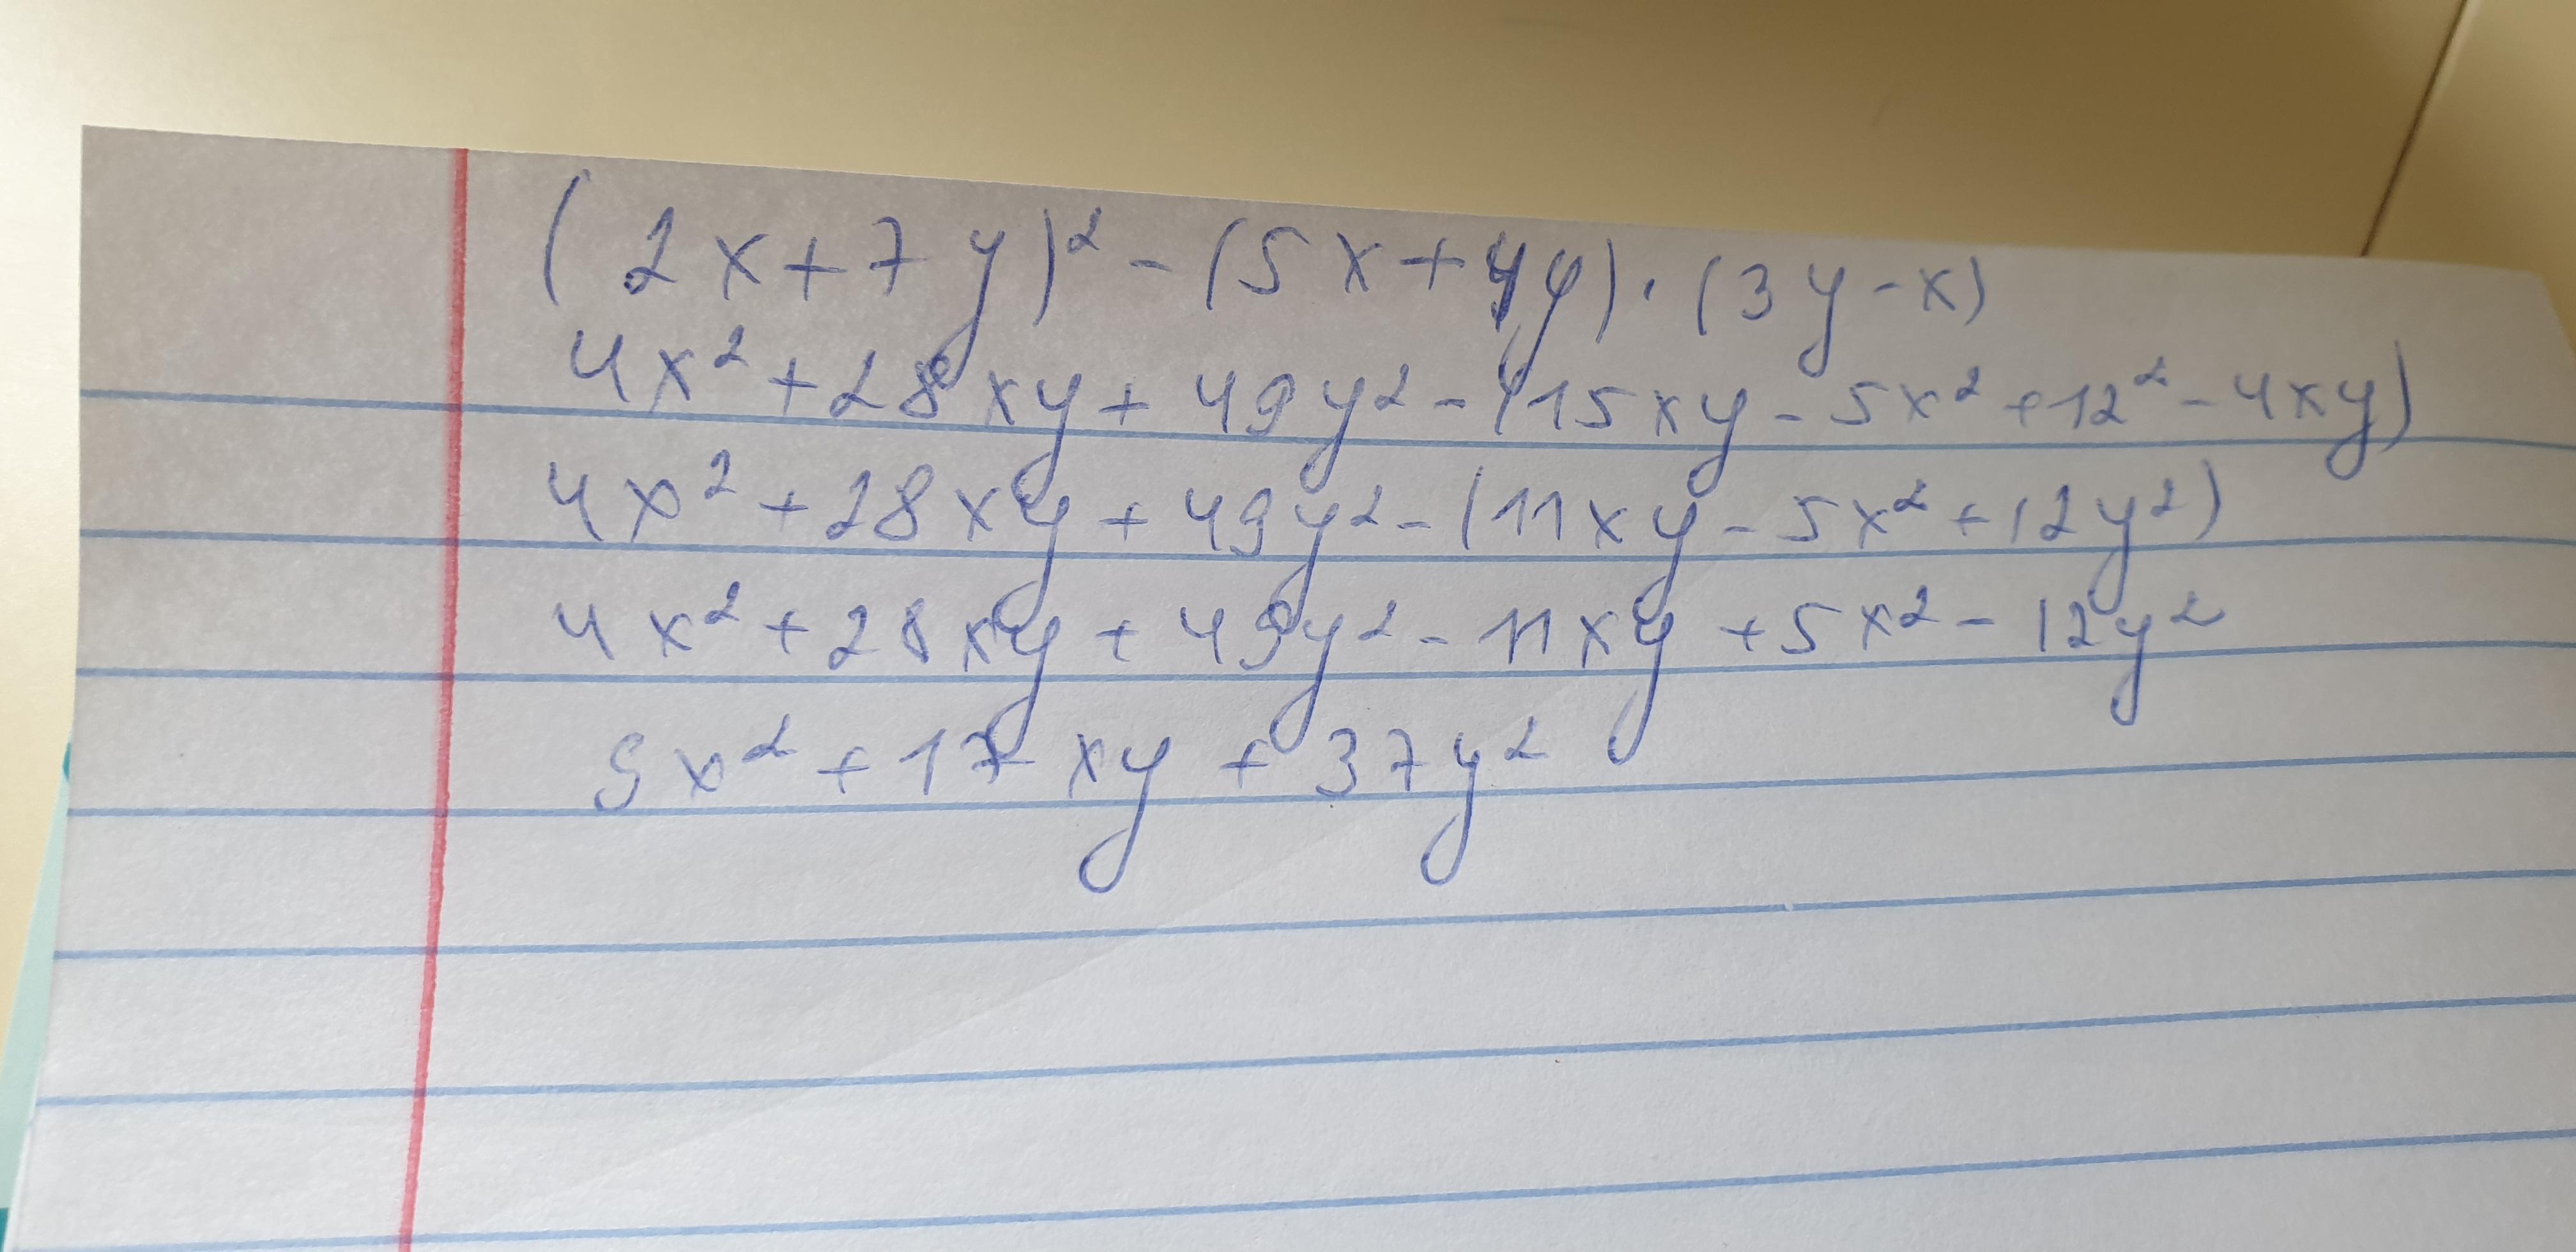 (2x+7y)² - (5x+4y)·(3y-x)
4x²+28xy+49y²-(15xy-5x²+12²-4xy)
4x²+28xy+49y²-(11xy-5x²+12y²)
4x²+28xy+49y²-11xy+5x²-12y²
9x²+17xy+37y²